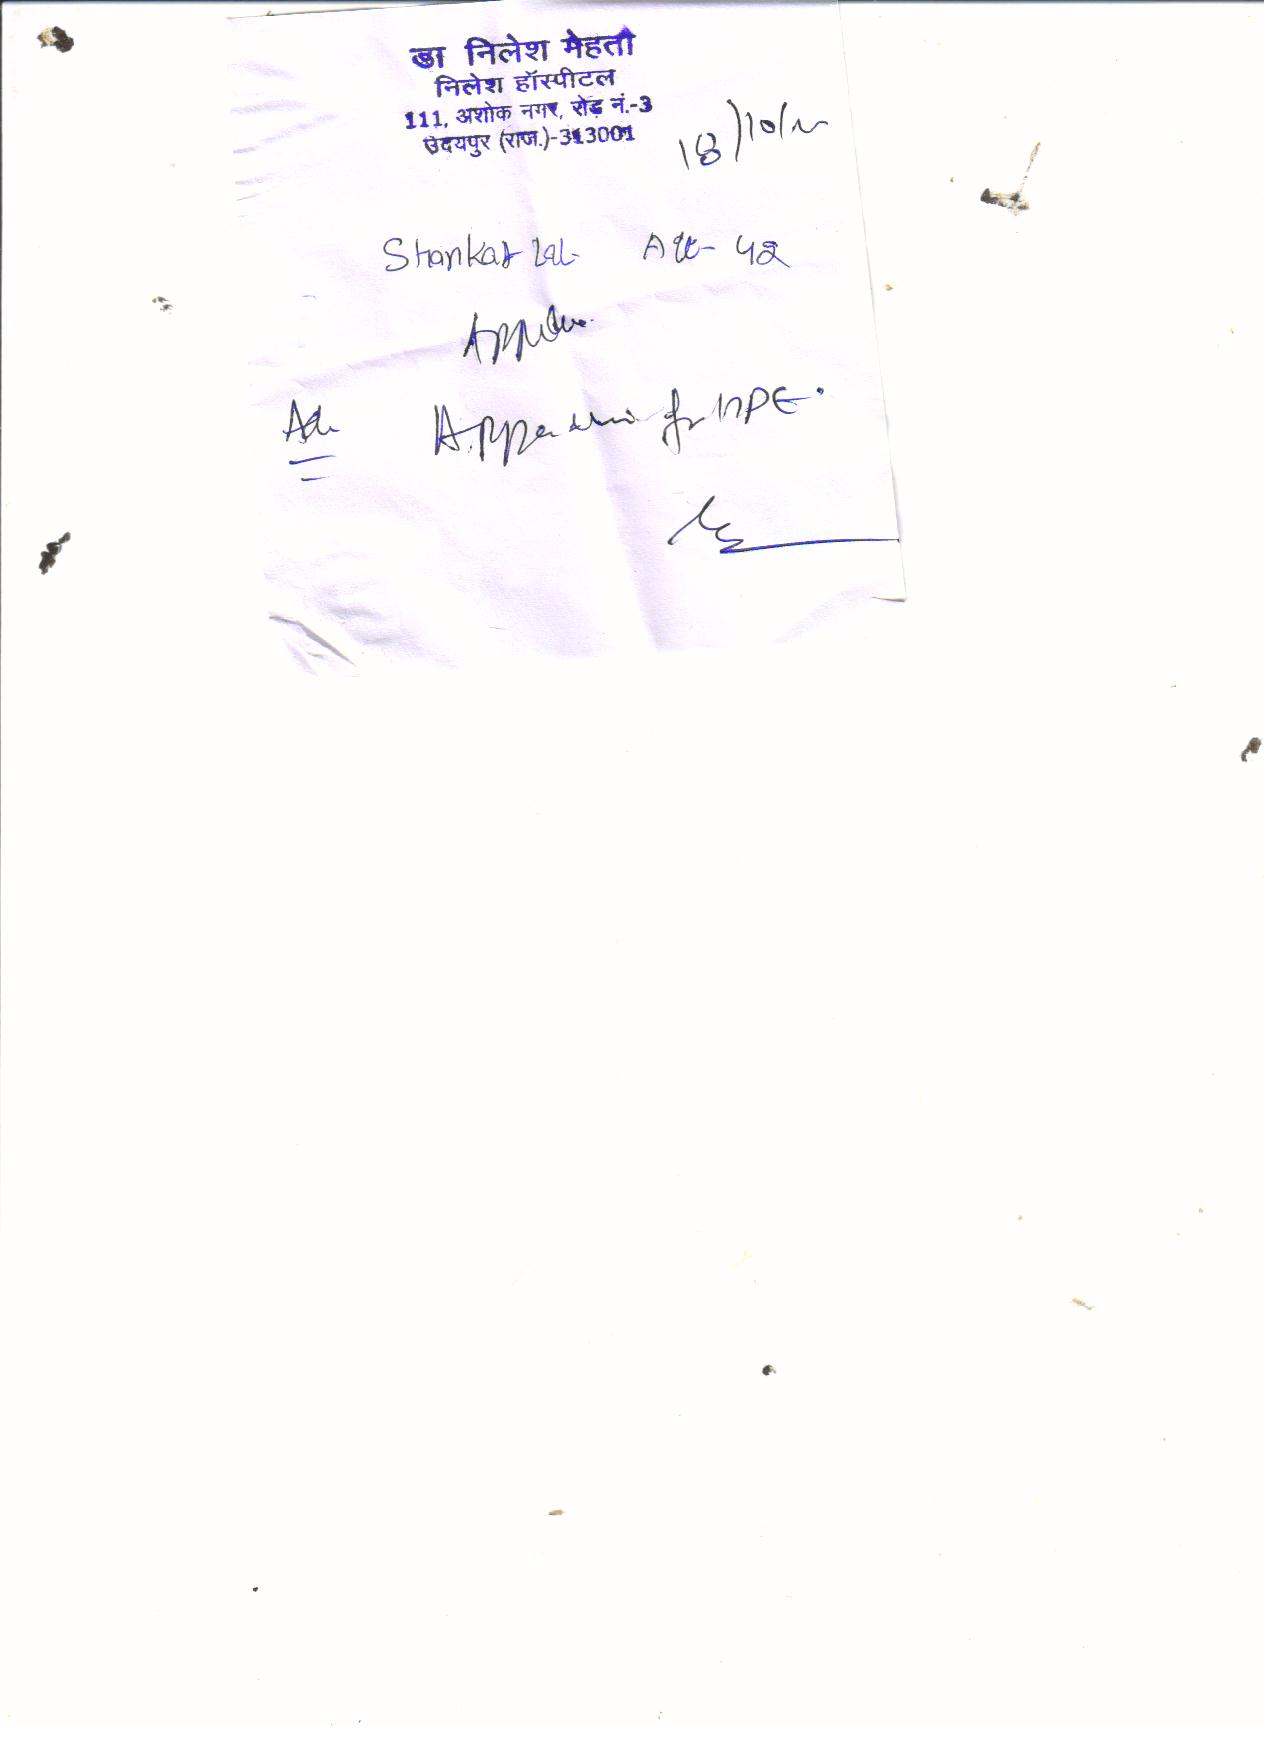 डा निलेश मेहता
निलेश हॉस्पीटल
111, अशोक नगर, रोड नं.-3
उदयपुर (राज.)-313001
18/10/
Shankar Lal Age- 42
Adv
for HPE.